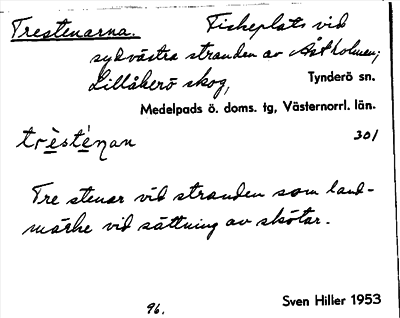 Trestenarna. Fiskeplats vid
sydvästra stranden av Åstholmen;
Lillåkerö skog, Tynderö sn.
Medelpads ö. doms. tg, Västernorrl. län.
trèsténan 301
Tre stenar vid stranden som land-
märke vid sättning av skötar.
96. Sven Hiller 1953